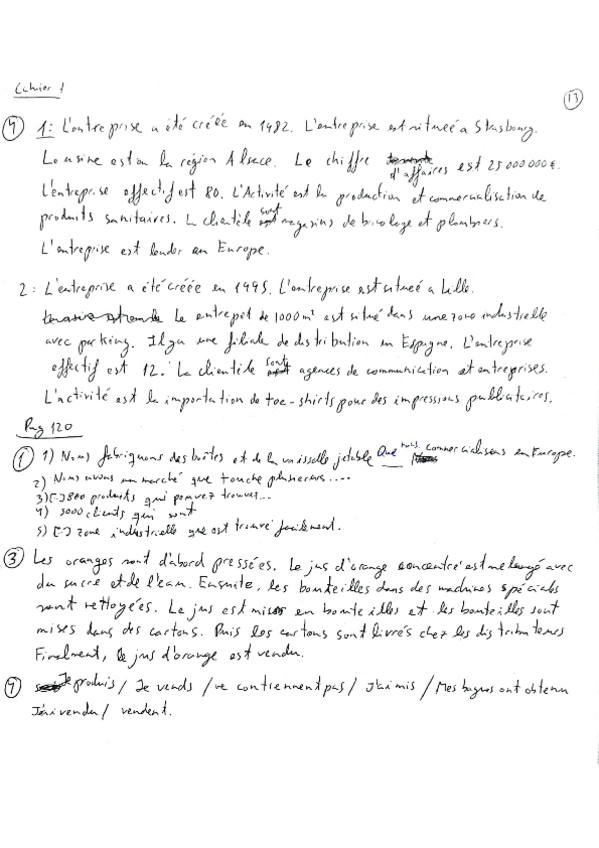 Cahier 1
13
4 1: L'entreprise a été créée en 1982. L'entreprise est située a Strasbourg.
La usine est en la région Alsace. Le chiffre d'affaires est 25 000 000 €.
L'entreprise effectif est 80. L'Activité est la production et commercialisation de
produits sanitaires. L clientèle sont magasins de bricolage et plombiers.
L'entreprise est leader en Europe.
2: L'entreprise a été créée en 1995. L'entreprise est située a Lille.
Le entrepôt de 1000 m² est situé dans une zone industrielle
avec parking. Il y a une filiale de distribution en Espagne. L'entreprise
effectif est 12. La clientèle sont agences de communication et entreprises.
L'activité est la importation de tee-shirts pour des impressions publicitaires.
Pag 120
1 1) Nous fabriquons des boîtes et de la vaisselle jetable Que nous commercialisons en Europe.
2) Nous avons un marché que touche plusieurs ....
3) [-] 800 produits qui pouvez trouver...
4) 3000 clients qui sont
5) [-] zone industrielle que est trouvé facilement.
3 Les oranges sont d'abord pressées. Le jus d'orange concentré est melangé avec
du sucre et de l'eau. Ensuite, les bouteilles dans des machines spécials
sont nettoyées. Le jus est mises en bouteilles et les bouteilles sont
mises dans des cartons. Puis les cartons sont livrés chez les distributeurs
Finalment, le jus d'orange est vendu.
4 Je produis / Je vends / ne contiennent pas / J'ai mis / Mes bagues ont obtenu
J'ai vendu / vendent.